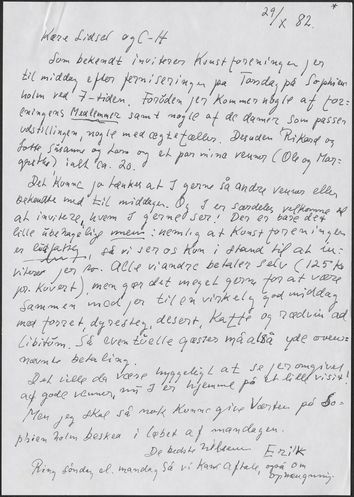 29/X 82.
Kære Lidsel og C-H
Som bekendt inviterer Kunstforeningen jer
til middag efter ferniseringen på Torsdag på Sophien
holm ved 7-tiden. Foruden jer kommer nogle af for-
eningens Medlemmer samt nogle af de damer som passer
udstillingen, nogle med ægtefæller. Desuden Rikard og
Lotte Susanne og Lars og et par mine venner (Ole og Mar-
) ialt ca. 20.
Det kunne jo tænkes at I gerne så andre venner eller
bekendte med til middagen. Og I er særdeles velkomne til
at invitere, hvem I gerne ser! Der er bare det
lille ubehagelige men: nemlig at Kunstforeningen
er , så vi ser os kun i stand til at in-
vitere jer to. Alle vi andre betaler selv (125 Kr
pr. Kuvert), men gør det meget gerne for at være
sammen med jer til en virkelig god middag
med forret, dyresteg, desert, Kaffe og rødvin ad
libitum. Så eventuelle gæster må altså yde oven-
nævnte betaling.
Det ville da være hyggeligt at se jer omgivet
af gode venner, nu I er hjemme på et lille visit!
Men jeg skal så nok kunne give Værten på So-
phienholm besked i løbet af mandagen.
De bedste hilsener Erik
Ring søndag el. mandag så vi kan aftale, også om
ophængning.